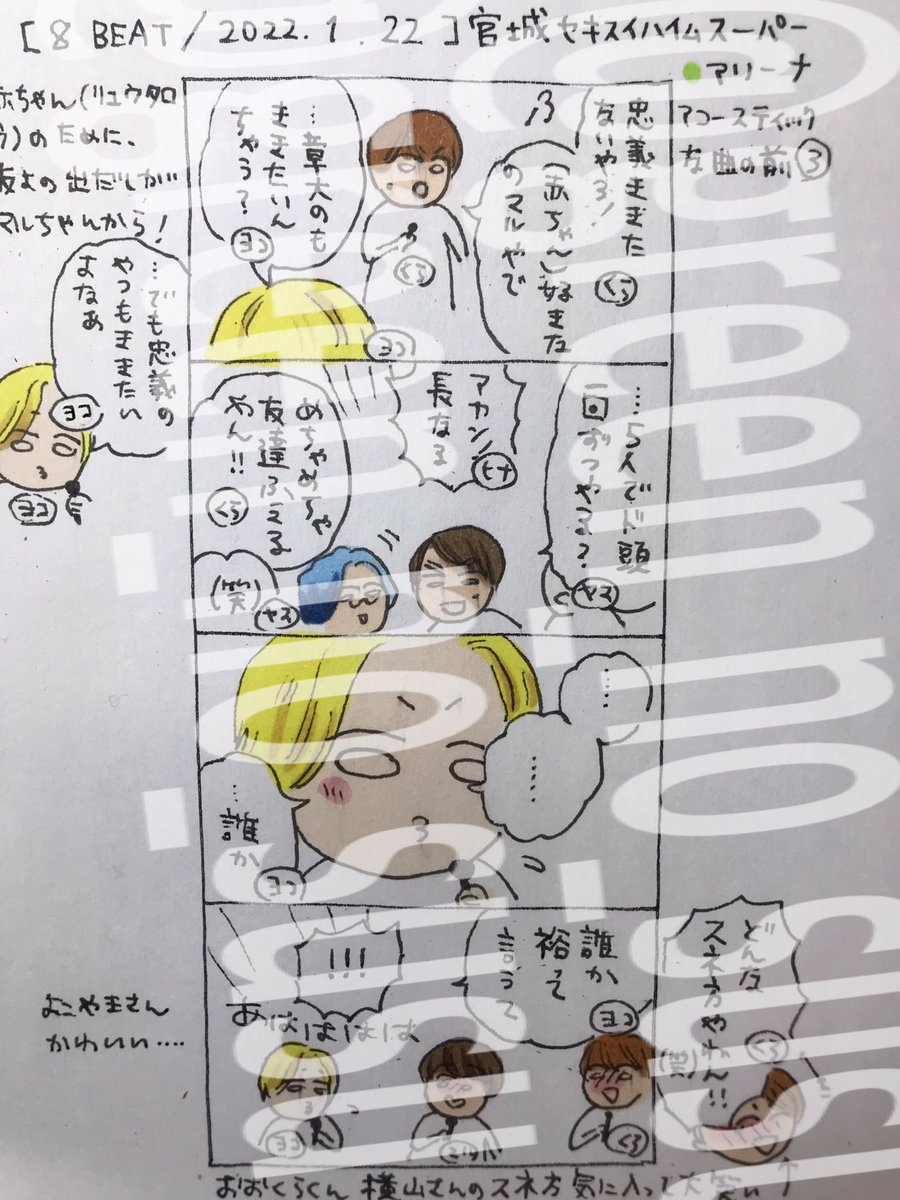 [8 BEAT/2022.1.22]宮城セキスイハイムスーパー
アリーナ
アコースティック
な曲の前③
赤ちゃん(リュウタロ
ウ)のために、
友よの出だしが
マルちゃんから!
忠義ききた
ないやろ!
くら
(赤ちゃん)好きな
のマルやで
くら
…章大のも
ききたいん
ちゃう?
ヨコ
ヨコ
…でも忠義の
やつもききたい
よなあ
ヨコ
ヨコ
…5人でド頭
一回ずつやる?
ヤス
アカン!
長なる
ヒナ
めちゃめちゃ
友達ふえる
やん!!
くら
(笑)
ヤス
……
……
…誰か
ヨコ
誰か
裕て
言うて
ヨコ
!!!
あはははは
どんな
スネ方やねん!!
くら
(笑)
ヨコ
くら
よこやまさん
かわいい….
おおくらくん 横山さんのスネ方気に入って大笑い